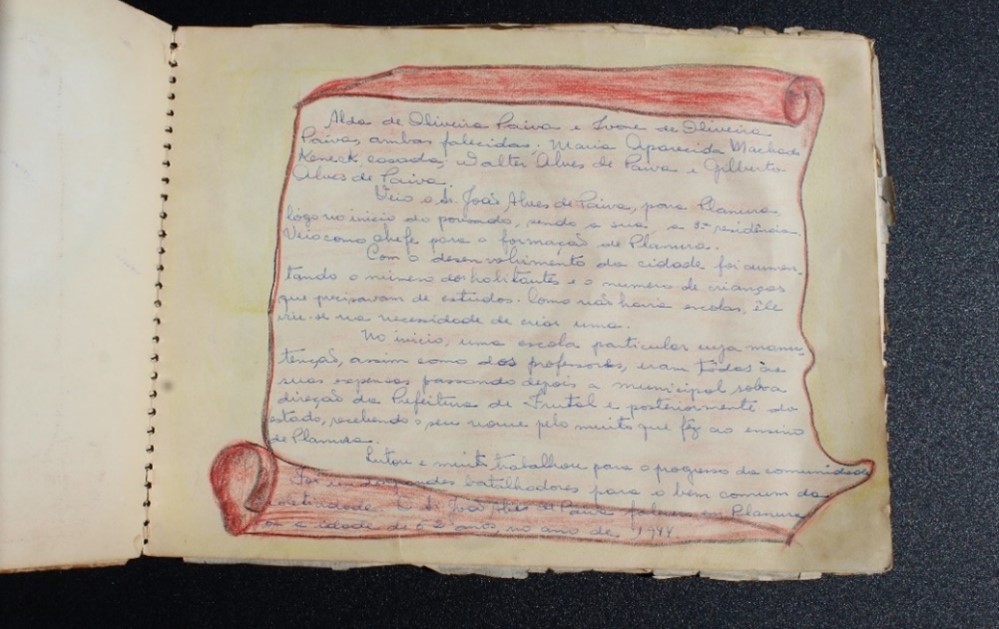 Alda de Oliveira Paiva e Ivone de Oliveira
Paiva, ambas falecidas. Maria Aparecida Machado
Keneck casada, Walter Alves de Paiva e Gilberto
Alves de Paiva.
Veio o Sr. João Alves de Paiva, para Planura,
lôgo no início do povoado, sendo a sua, a 3ª residência.
Veio como chefe para a formação de Planura.
Com o desenvolvimento da cidade foi aumen-
tando o número dos habitantes e o numero de crianças
que precisavam de estudos. Como não havia escolas, Ele
viu-se na necessidade de criar uma.
No início, uma escola particular cuja manu-
tenção, assim como dos professores, eram tôdas às
suas expensas passando depois a municipal sob a
direção da Prefeitura de Frutal e posteriormente do
estado, recebendo o seu nome pelo muito que fêz ao ensino
de Planura.
Lutou e muito trabalhou para o progresso da comunidade
Foi um dos grandes batalhadores para o bem comum da
O Sr. João Alves de Paiva faleceu em Planura
a idade de 62 anos, no ano de 1944.